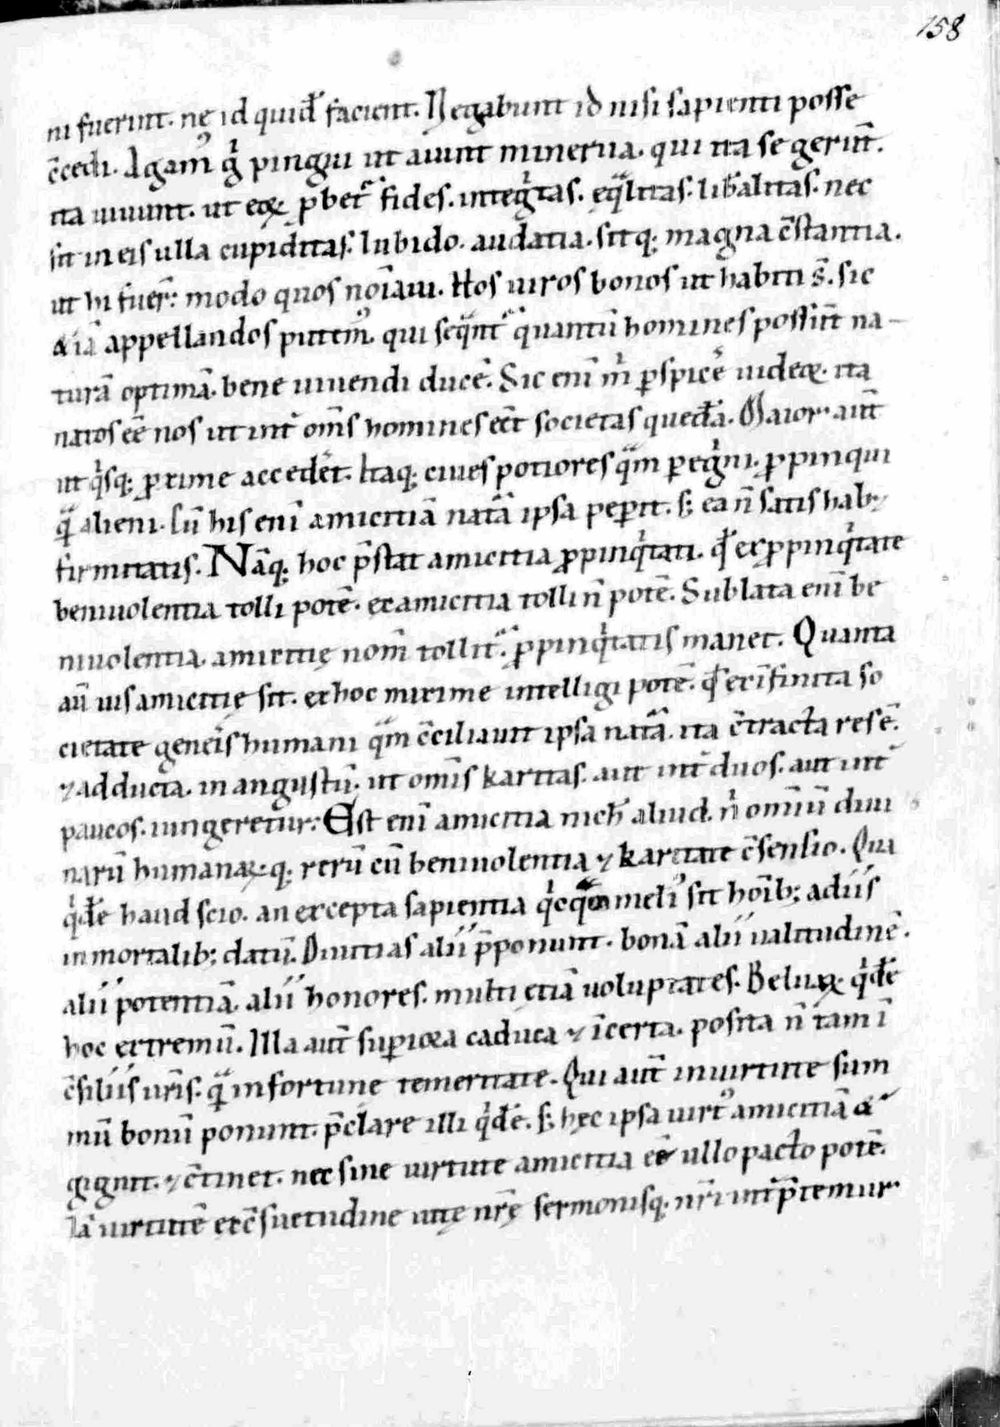 158
ni fuerint. nę id quid̄ facient. Negabunt id nisi sapienti posse
c̄cedi. Agam᷒ g̊ pingui ut aiunt minerua. qui ita se gerūt.
ita uiuunt. ut eoꝝ ꝓbet᷑ fides. integͥtas. ęqͣlitas. libalitas. nec
sit in eis ulla cupiditas. lubido. audatia. sitq; magna c̄stantia.
ut hi fuer̄: modo quos noīaui. Hos uiros bonos ut habiti s̄. sic
& iā appellandos putem᷒. qui seqͣnt᷑ quantū homines possūt na-
turā optimā. bene uiuendi ducē. Sic enī m̊ ꝑspice᷑ uideoꝝ. ita
natos eē nos ut int̄ om̄s homines eēt societas quedā. Maior aūt
ut qͥsq; ꝓxime accedēt. Itaq; ciues potiores qͣm ꝑegͥni. ꝓpinqui
qͣ alieni. Cū his enī amicitiā natā ipsa peꝑit. s; ea n̄ satis hab;
firmitatis. Nāq; hoc p̄stat amicitia ꝓpinqͥtati. qd̄ ex ꝓpinqͥtate
beniuolentia tolli potē. ex amicitia tolli n̄ potē. Sublata enī be
niuolentia. amicitię nom̄ tollit᷑. ꝓpinqͥtatis manet. Quanta
aū uis amicitię sit. ex hoc maxime intelligi potē. qd̄ ex īfinita so
cietate genēis humani qͣm c̄ciliauit ipsa natā. ita c̄tracta res ē.
& adducta. in angustū. ut omīs karitas. aut int̄ duos. aut int̄
paucos. iungeretur: Est enī amicitia nich̄ aliud. n̊ omniū diui
narū humanaꝝq; rerū cū beniuolentia & karitate c̄sensio. Qua
qͥdē haud scio. an excepta sapientia qͥcqͣm meli᷒ sit hoīb; a diis
inmortalib; datū. Diuitias alii p̄ponunt. bonā alii ualitudinē.
alii potentiā. alii honores. multi etiā uoluptates. Beluaꝝ qͥdē
hoc extremū. Illa aūt suꝑiora caduca & īcerta. posita n̄ tam ī
c̄siliis ur̄is. qͣ in fortune temeritate. Qui aūt in uirtute sum
mū bonū ponunt. p̄clare illi qͥdē. s; hęc ipsa uirt᷒ amicitiā &
gignit. & c̄tinet. nec sine uirtute amicitia eē ullo pacto potē.
Iā uirtutē ex c̄suetudine uitę nr̄ę sermonisq; nr̄i int̄p̄temur